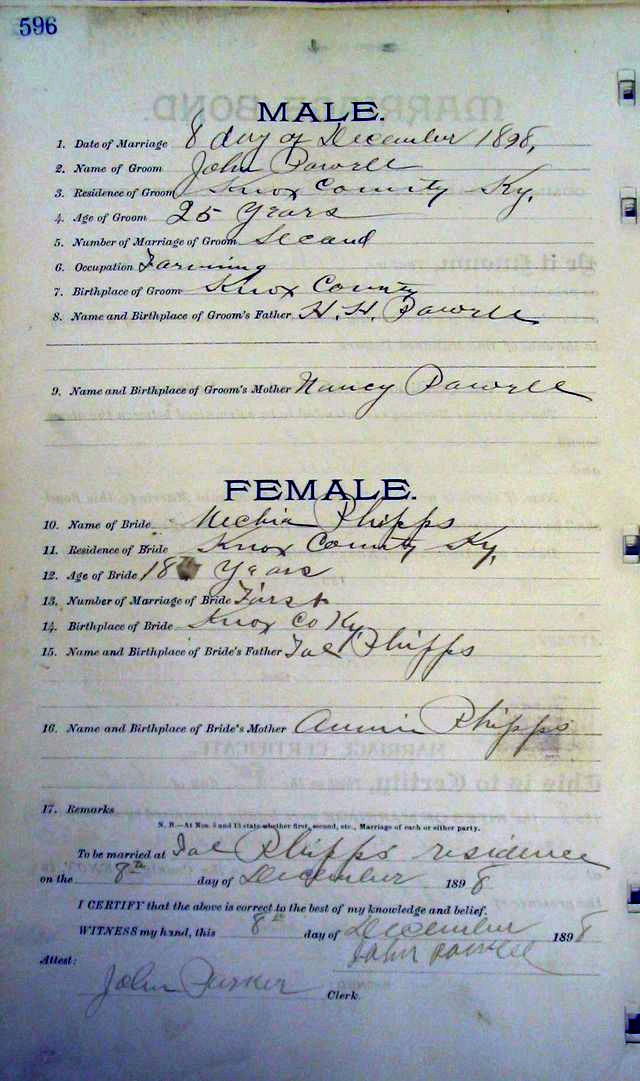 596
MALE.
1. Date of Marriage 8 day of December 1898,
2. Name of Groom John Powell
3. Residence of Groom Knox County Ky.
4. Age of Groom 25 Years
5. Number of Marriage of Groom Second
6. Occupation Farming
7. Birthplace of Groom Knox County
8. Name and Birthplace of Groom's Father H. H. Powell
9. Name and Birthplace of Groom's Mother Nancy Powell
FEMALE.
10. Name of Bride Phipps
11. Residence of Bride Knox County Ky.
12. Age of Bride 18 Years
13. Number of Marriage of Bride First
14. Birthplace of Bride Knox Co Ky
15. Name and Birthplace of Bride's Father Joe Phipps
16. Name and Birthplace of Bride's Mother Annie Phipps
17. Remarks
N. B.—At Nos. 5 and 13 state whether first, second, etc., Marriage of each or either party.
To be married at Joe Phipps residence
on the 8th day of December 1898
I CERTIFY that the above is correct to the best of my knowledge and belief.
WITNESS my hand, this 8th day of December 1898
John Powell
Attest:
John Parker Clerk.